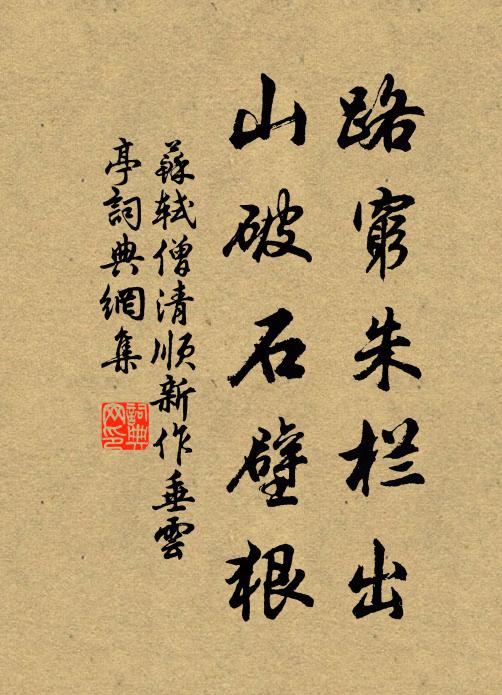 路窮朱栏出
山破石壁狠
蘇軾僧清順新作垂雲
亭詞典網集
詞典
网印